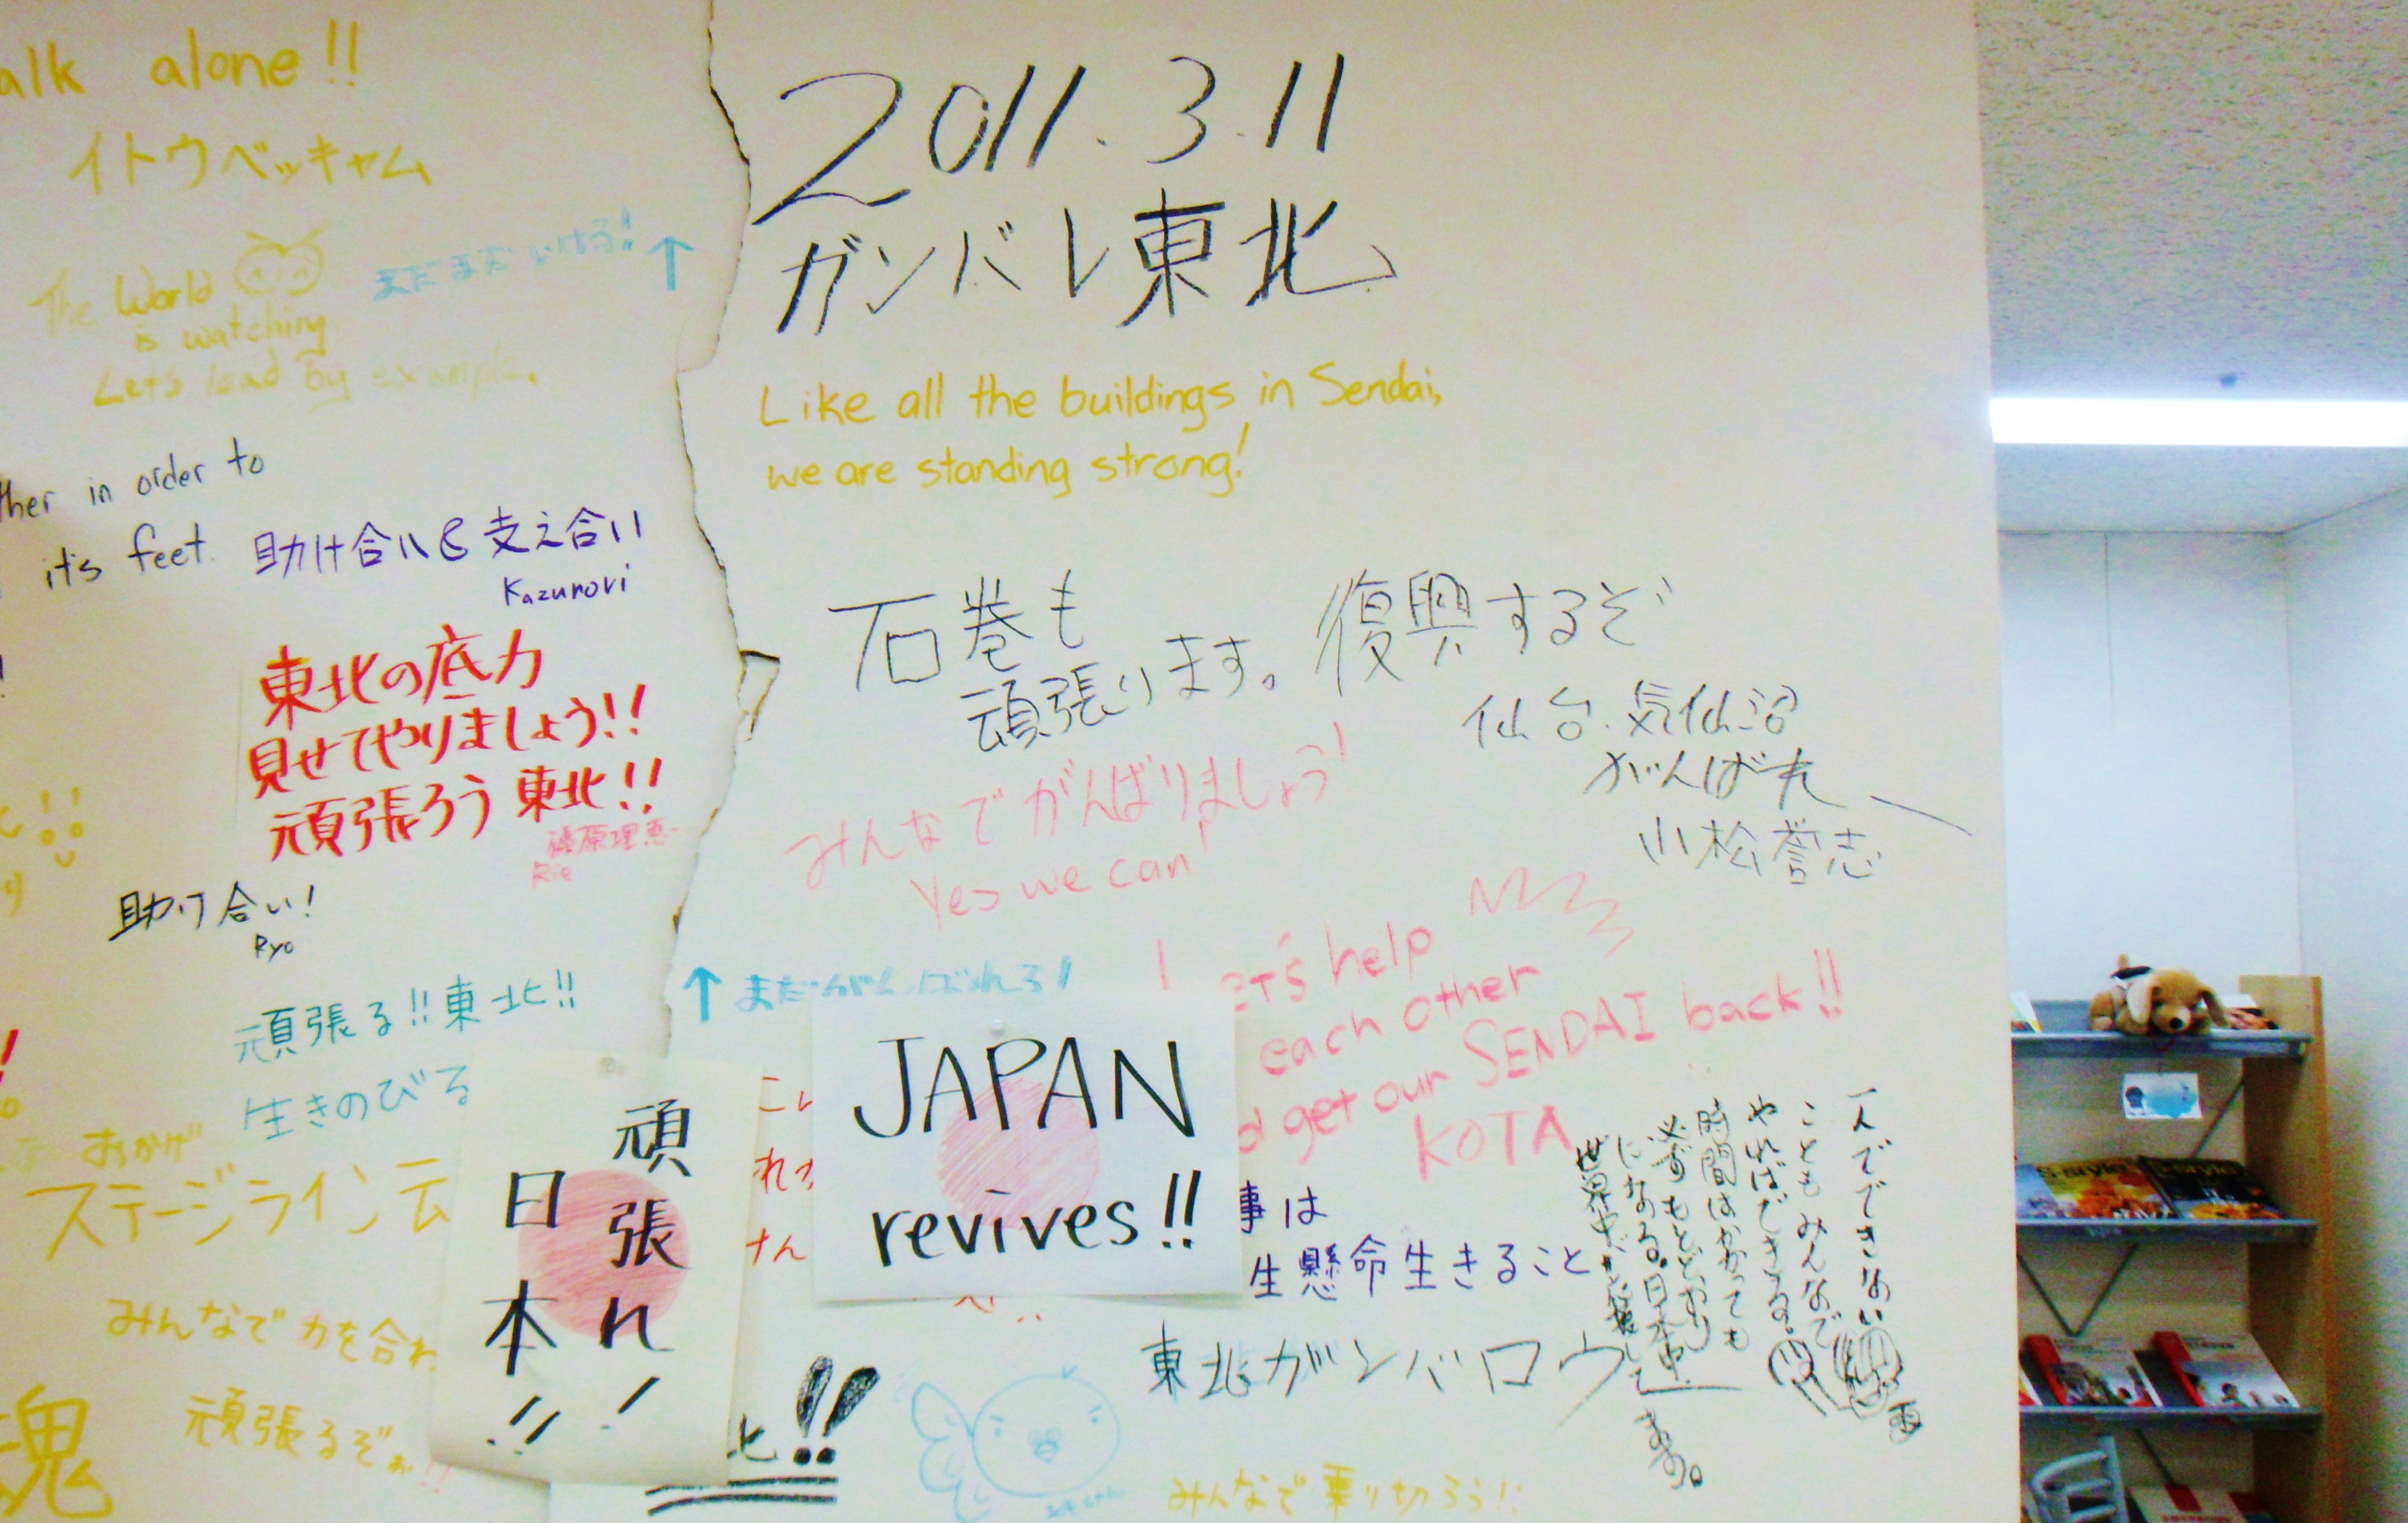 alk alone!!
イトウベッキャム
The World
is watching
Let's lead by example.
まだまだいける!! ↑
ther in order to
it's feet.
助け合い&支え合い
Kazunori
東北の底力
見せてやりましょう!!
頑張ろう東北!!
原理恵
Rie
助け合い!
Ryo
頑張る!!東北!!
生きのびる
おかげ
ステージライン
みんなで力を合わ
頑張るぞぉ!!
魂
頑張れ!
日本!!
2011.3.11
ガンバレ東北
Like all the buildings in Sendai,
we are standing strong!
石巻も
頑張ります。
復興するぞ
仙台.気仙沼
がんばれ
小松誉志
みんなでがんばりましょう!
Yes we can!
↑まだがんばれる!
Let's help
each other
d get our SENDAI back!!
KOTA
JAPAN
revives!!
こ
れ
けん
事は
生懸命生きること
東北ガンバロウ
一人でできない
こともみんなで
やればできる。
時間はかかっても
必ずもとどおり
になる。日本中
世界中が応援して
ます。
北!!
みんなで乗り切ろう!!
S-style